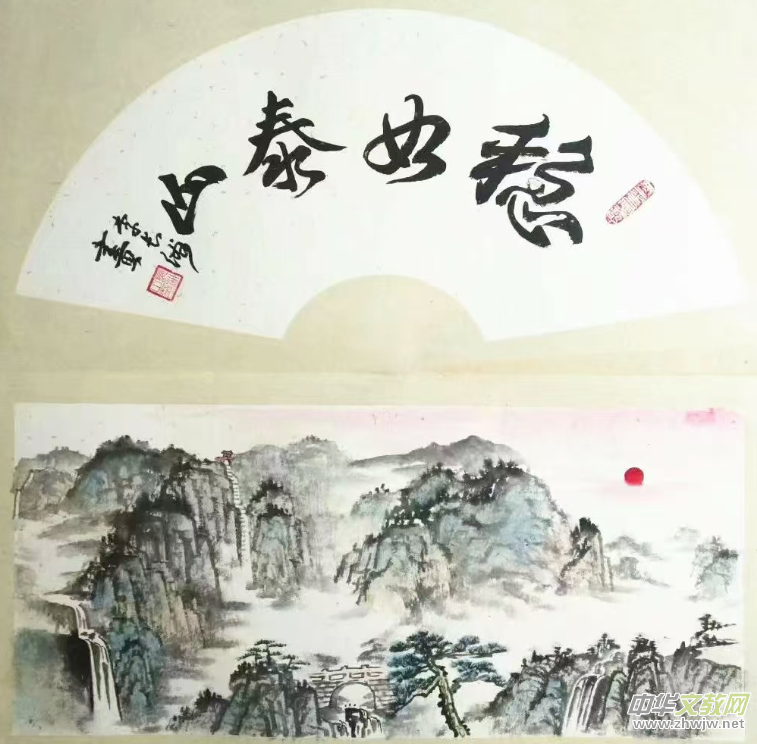 稳如泰山
李长
書
中华文教网
www.zhwjw.net